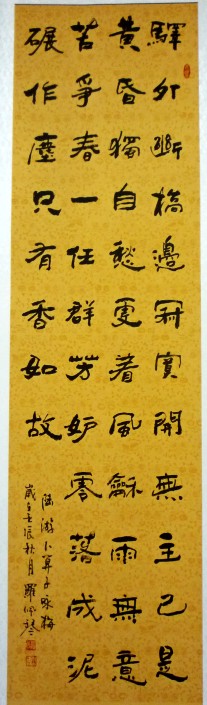 驛外斷橋邊寂寞開無主已是
黃昏獨自愁更着風龢雨無意
苦爭春一任群芳妒零落成泥
碾作塵只有香如故
陸游卜算子咏梅
歲在壬辰秋月 羅佩琴